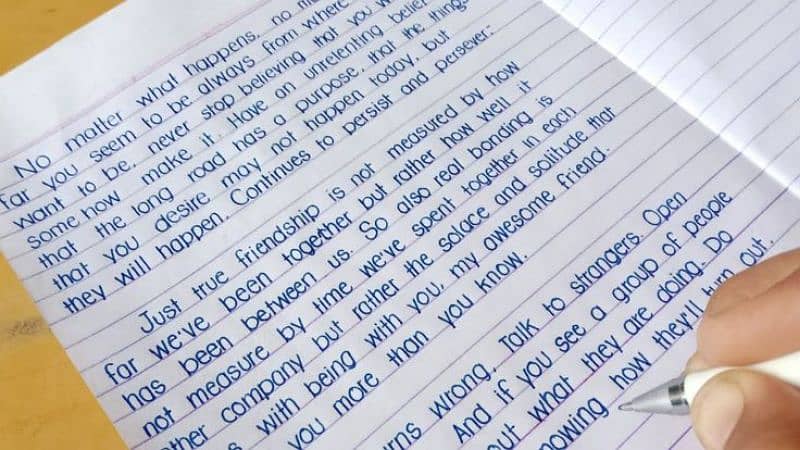 No matter what happens, no
far you seem to be always from where
want to be, never stop believing that you
some how make it. Have an unrelenting belief
that the long road has a purpose, that the things
that you desire may not happen today, but
they will happen. Continues to persist and persever.
Just true friendship is not measured by how
far we've been together but rather how well it
has been between us. So also real bonding is
not measure by time we've spent together in each
other company but rather the solace and solitude that
with being with you, my awesome friend.
you more than you know.
wrong. Talk to strangers. Open
And if you see a group of people
out what they are doing. Do
nowing how they'll turn out.